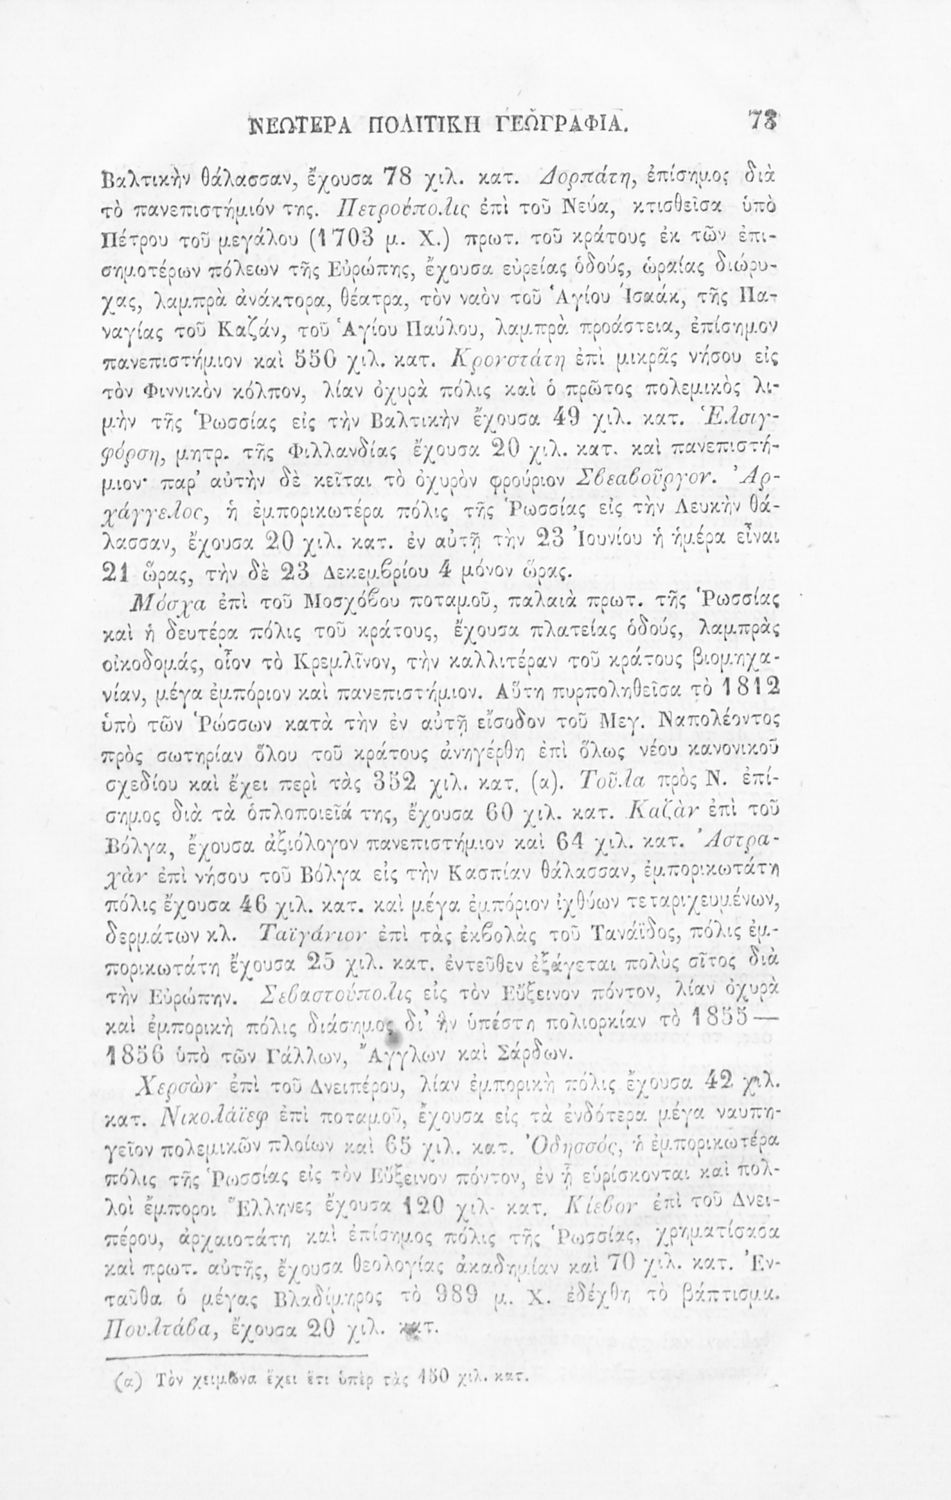 ΝΕΩΤΕΡΑ ΠΟΛΙΤΙΚΗ ΓΕΩΓΡΑΦΙΑ. 73
Βαλτικὴν θάλασσαν, ἔχουσα 78 χιλ. κατ. Δορπάτη, ἐπίσημος διὰ
τὸ πανεπιστήμιόν της. Πετρούπολις ἐπὶ τοῦ Νεύα, κτισθεῖσα ὑπὸ
Πέτρου τοῦ μεγάλου (1703 μ. Χ.) πρωτ. τοῦ κράτους ἐκ τῶν ἐπι-
σημοτέρων πόλεων τῆς Εὐρώπης, ἔχουσα εὐρείας ὁδούς, ὡραίας διώρυ-
χας, λαμπρὰ ἀνάκτορα, θέατρα, τὸν ναὸν τοῦ Ἁγίου Ἰσαάκ, τῆς Πα-
ναγίας τοῦ Καζάν, τοῦ Ἁγίου Παύλου, λαμπρὰ προάστεια, ἐπίσημον
πανεπιστήμιον καὶ 550 χιλ. κατ. Κρονστάτη ἐπὶ μικρᾶς νήσου εἰς
τὸν Φιννικὸν κόλπον, λίαν ὀχυρὰ πόλις καὶ ὁ πρῶτος πολεμικὸς λι-
μὴν τῆς Ῥωσσίας εἰς τὴν Βαλτικὴν ἔχουσα 49 χιλ. κατ. Ἑλσιγ-
φόρση, μητρ. τῆς Φιλλανδίας ἔχουσα 20 χιλ. κατ. καὶ πανεπιστή-
μιον· παρ' αὐτὴν δὲ κεῖται τὸ ὀχυρὸν φρούριον Σβεαβοῦργον. Ἀρ-
χάγγελος, ἡ ἐμπορικωτέρα πόλις τῆς Ῥωσσίας εἰς τὴν Λευκὴν θά-
λασσαν, ἔχουσα 20 χιλ. κατ. ἐν αὐτῇ τὴν 23 Ἰουνίου ἡ ἡμέρα εἶναι
21 ὥρας, τὴν δὲ 23 Δεκεμβρίου 4 μόνον ὥρας.
Μόσχα ἐπὶ τοῦ Μοσχόβου ποταμοῦ, παλαιὰ πρωτ. τῆς Ῥωσσίας
καὶ ἡ δευτέρα πόλις τοῦ κράτους, ἔχουσα πλατείας ὁδούς, λαμπρὰς
οἰκοδομάς, οἷον τὸ Κρεμλῖνον, τὴν καλλιτέραν τοῦ κράτους βιομηχα-
νίαν, μέγα ἐμπόριον καὶ πανεπιστήμιον. Αὕτη πυρποληθεῖσα τὸ 1812
ὑπὸ τῶν Ῥώσσων κατὰ τὴν ἐν αὐτῇ εἴσοδον τοῦ Μεγ. Ναπολέοντος
πρὸς σωτηρίαν ὅλου τοῦ κράτους ἀνηγέρθη ἐπὶ ὅλως νέου κανονικοῦ
σχεδίου καὶ ἔχει περὶ τὰς 352 χιλ. κατ. (α). Τοῦλα πρὸς Ν. ἐπί-
σημος διὰ τὰ ὁπλοποιεῖά της, ἔχουσα 60 χιλ. κατ. Καζὰν ἐπὶ τοῦ
Βόλγα, ἔχουσα ἀξιόλογον πανεπιστήμιον καὶ 64 χιλ. κατ. Ἀστρα-
χὰν ἐπὶ νήσου τοῦ Βόλγα εἰς τὴν Κασπίαν θάλασσαν, ἐμπορικωτάτη
πόλις ἔχουσα 46 χιλ. κατ. καὶ μέγα ἐμπόριον ἰχθύων τεταριχευμένων,
δερμάτων κλ. Ταϊγάνιον ἐπὶ τὰς ἐκβολὰς τοῦ Τανάϊδος, πόλις ἐμ-
πορικωτάτη ἔχουσα 25 χιλ. κατ. ἐντεῦθεν ἐξάγεται πολὺς σῖτος διὰ
τὴν Εὐρώπην. Σεβαστούπολις εἰς τὸν Εὔξεινον πόντον, λίαν ὀχυρὰ
καὶ ἐμπορικὴ πόλις διάσημος δι' ἣν ὑπέστη πολιορκίαν τὸ 1855—
1856 ὑπὸ τῶν Γάλλων, Ἄγγλων καὶ Σάρδων.
Χερσὼν ἐπὶ τοῦ Δνειπέρου, λίαν ἐμπορικὴ πόλις ἔχουσα 42 χιλ.
κατ. Νικολάϊεφ ἐπὶ ποταμοῦ, ἔχουσα εἰς τὰ ἐνδότερα μέγα ναυπη-
γεῖον πολεμικῶν πλοίων καὶ 65 χιλ. κατ. Ὀδησσός, ἡ ἐμπορικωτέρα
πόλις τῆς Ῥωσσίας εἰς τὸν Εὔξεινον πόντον, ἐν ᾗ εὑρίσκονται καὶ πολ-
λοὶ ἔμποροι Ἕλληνες ἔχουσα 120 χιλ. κατ. Κίεβον ἐπὶ τοῦ Δνει-
πέρου, ἀρχαιοτάτη καὶ ἐπίσημος πόλις τῆς Ῥωσσίας, χρηματίσασα
καὶ πρωτ. αὐτῆς, ἔχουσα θεολογίας ἀκαδημίαν καὶ 70 χιλ. κατ. Ἐν-
ταῦθα ὁ μέγας Βλαδίμηρος τὸ 989 μ. Χ. ἐδέχθη τὸ βάπτισμα.
Πουλτάβα, ἔχουσα 20 χιλ. κατ.
(α) Τὸν χειμῶνα ἔχει ἔτι ὑπὲρ τὰς 150 χιλ. κατ.